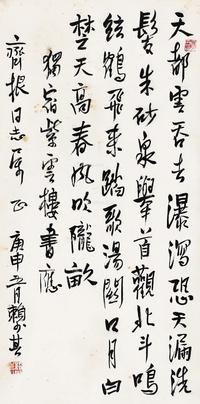 天都雲吞去瀑瀉恐天漏洗
髮朱砂泉舉首觀北斗鳴
絃鶴飛來踏歌湯關口月白
楚天高春風吹隴畝
獨宿紫雲樓書應
齊根同志屬正 庚申五月賴少其